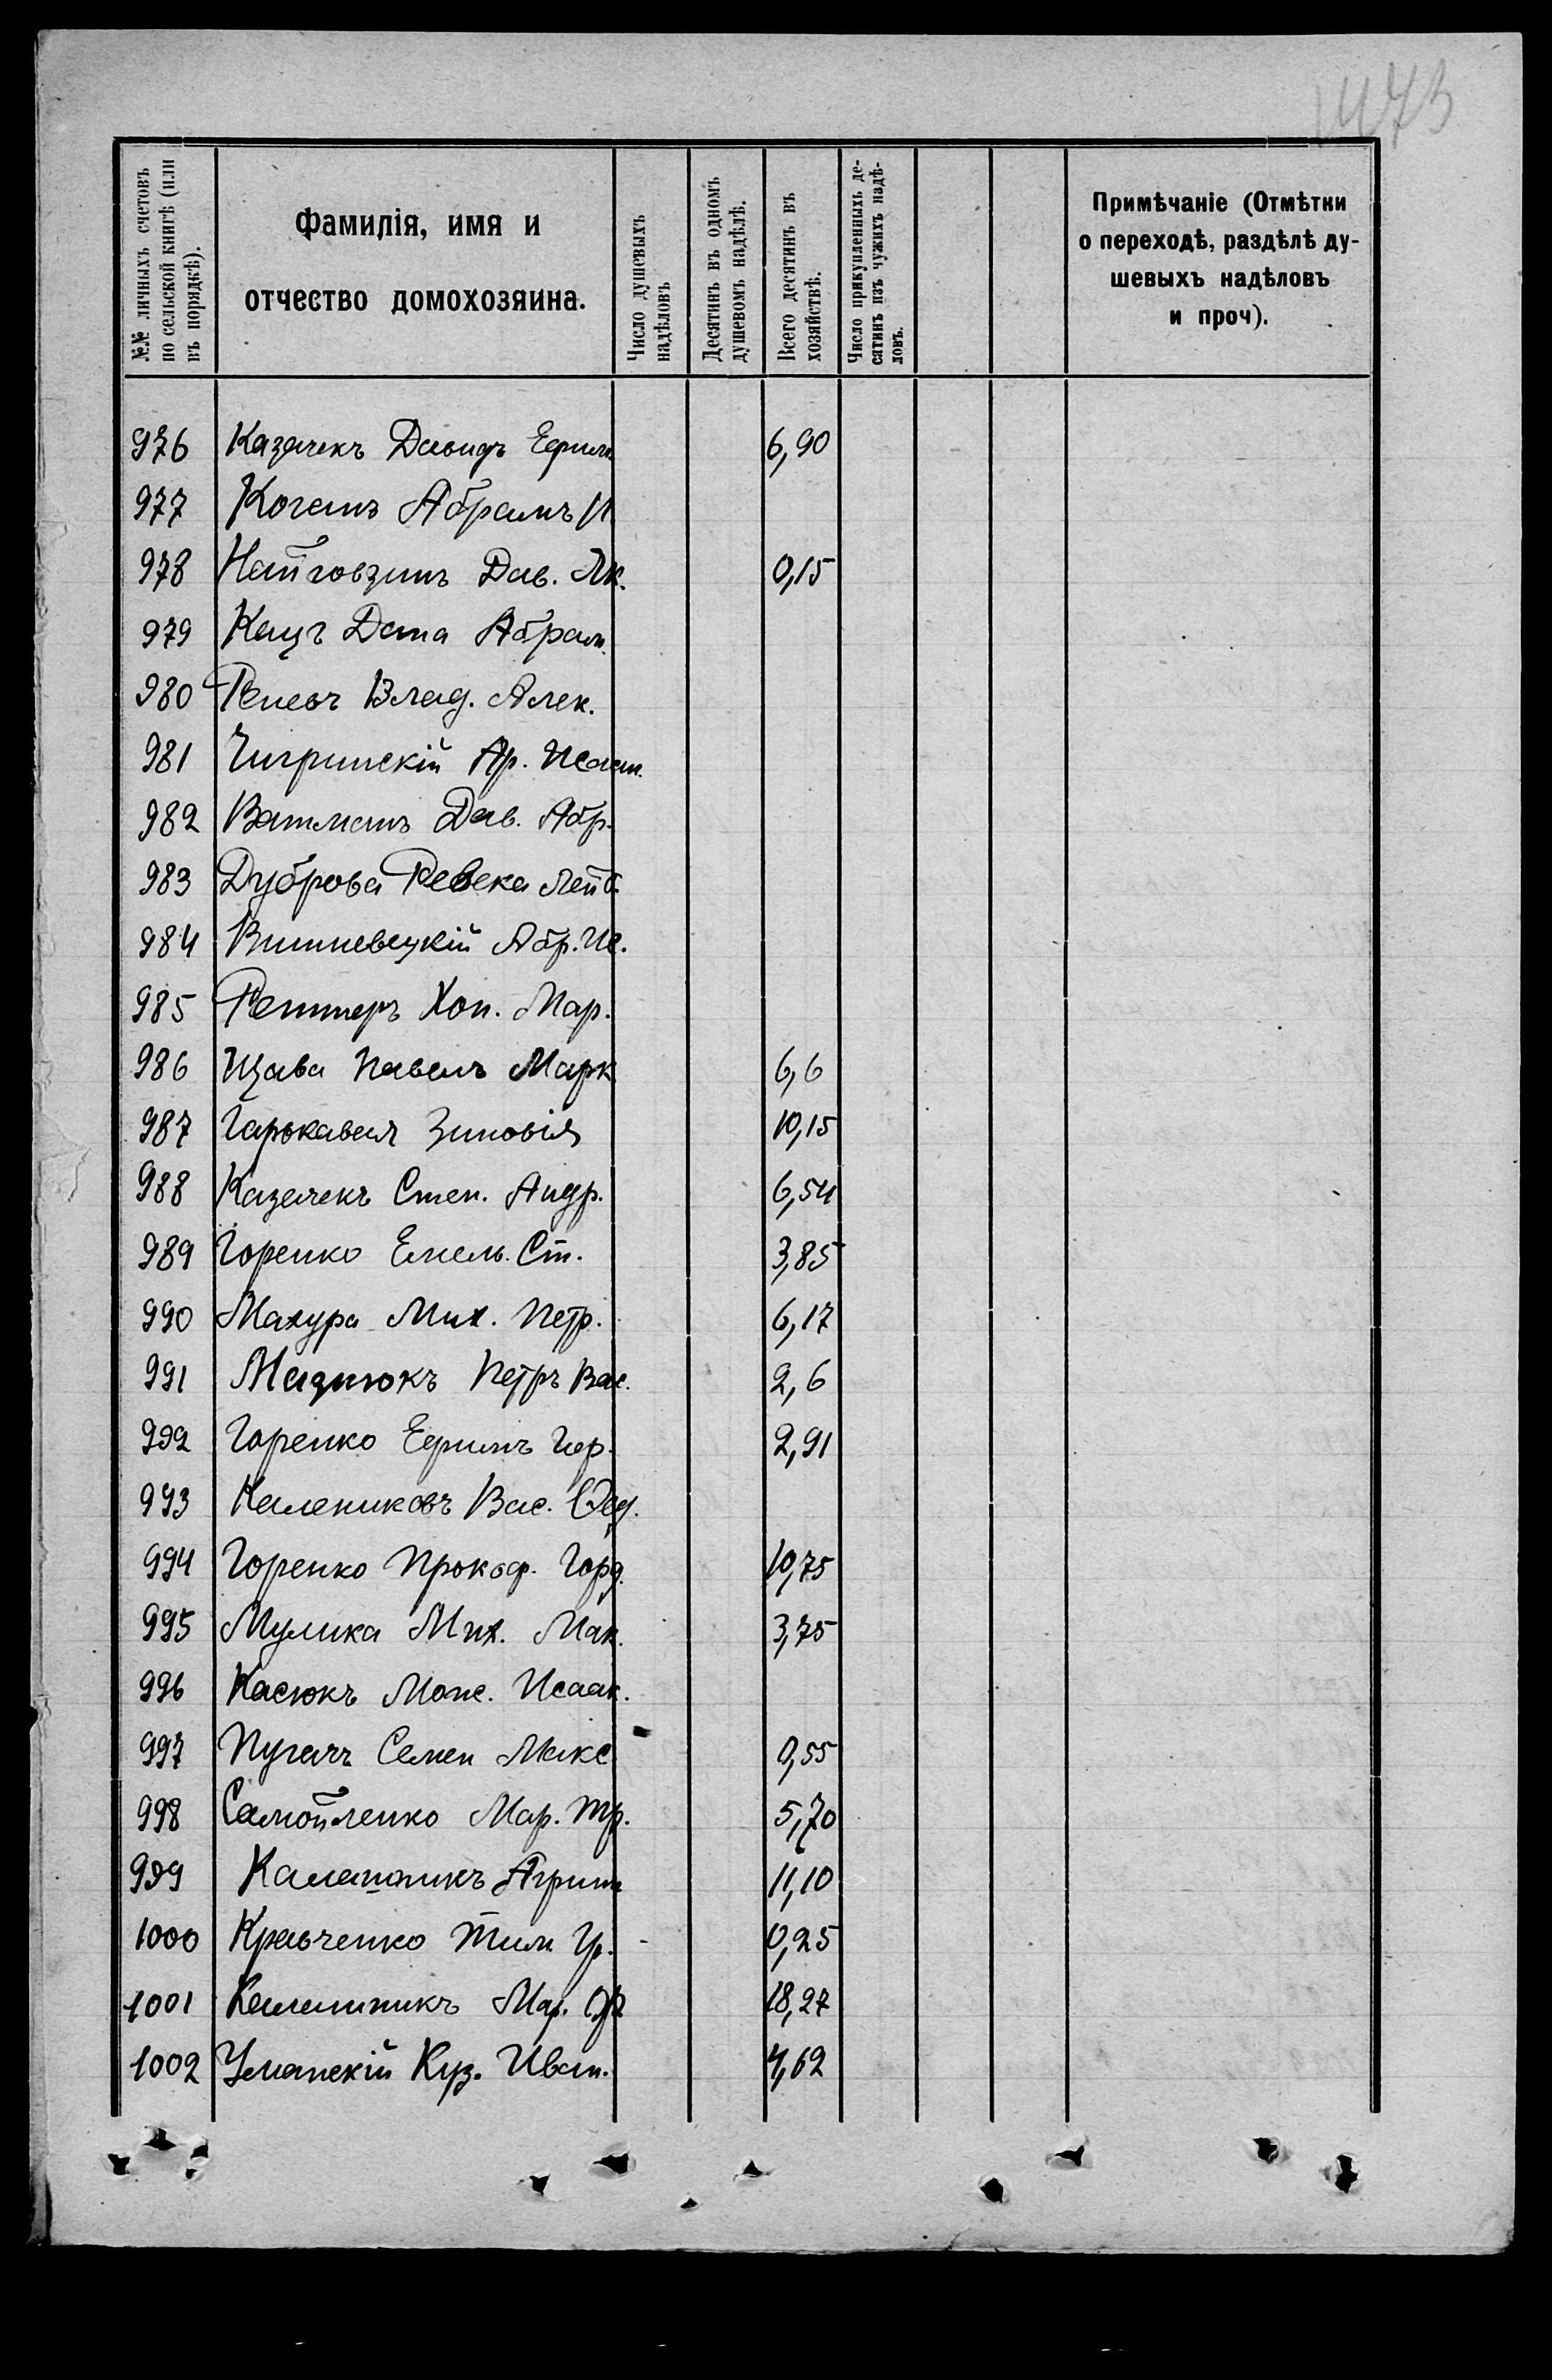 1473
№№ личныхъ счетовъ по сельской книгѣ (или въ порядкѣ).
Фамилія, имя и отчество домохозяина.
Число душевыхъ надѣловъ
Десятинъ въ одномъ душевомъ надѣлѣ.
Всего десятинъ въ хозяйствѣ.
Число прикупленныхъ десятинъ изъ чужихъ надѣловъ.
Примѣчаніе (Отмѣтки о переходѣ, раздѣлѣ душевыхъ надѣловъ и проч).
976 Казачекъ Давидъ Ефим. 6,90
977 Коганъ Абрамъ И
978 Нейговзинъ Дав. Як. 0,15
979 Кацъ Дина Абрам.
980 Репевъ Влад. Алек.
981 Чигринскій Ар. Исаак.
982 Ватманъ Дав. Абр.
983 Дуброва Ревека Лейб
984 Вишневецкій Абр. Ис.
985 Реттеръ Хон. Мар.
986 Щава Павелъ Марк 6,6
987 Гарькавая Зиновія 10,15
988 Казачекъ Степ. Андр. 6,54
989 Горенко Емель. Ст. 3,85
990 Махура Мих. Петр. 6,17
991 Мазнюкъ Петръ Вас. 2,6
992 Горенко Ефимъ Гор. 2,91
993 Калениковъ Вас. Фед.
994 Горенко Прокоф. Горд. 10,75
995 Мулика Мих. Мак. 3,75
996 Касюкъ Моис. Исаак.
997 Пугачъ Семен Макс 0,55
998 Самойленко Мар. Тр. 5,70
999 Калашникъ Агрип 11,10
1000 Кравченко Тим. Гр. 0,25
1001 Калашникъ Мар. 18,27
1002 Уманскій Куз. Иван. 4,62